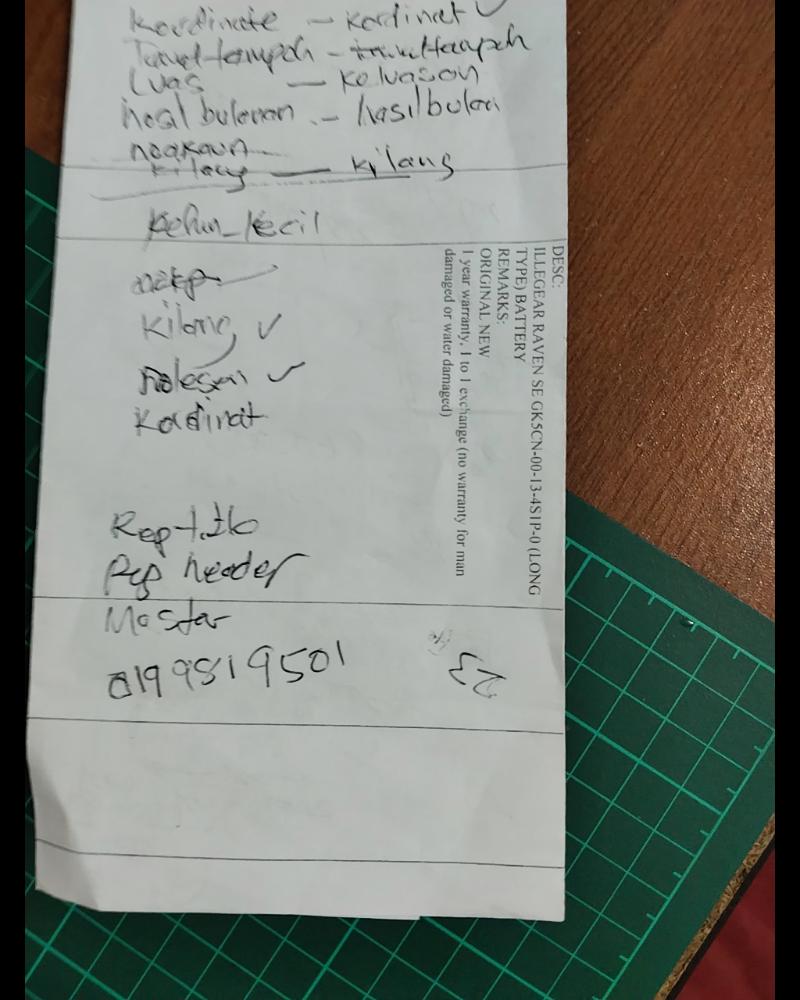 Kordinate - Kordinat ✓
Luas - Keluasan
hasil bulanan - hasilbulan
Kilang - Kilang
Kebun_kecil
Kilang ✓
Kordinat
Rep header
Master
0199819501
23
DESC:
ILLEGEAR RAVEN SE GK5CN-00-13-4S1P-0 (LONG
TYPE) BATTERY
REMARKS:
ORIGINAL NEW
1 year warranty, 1 to 1 exchange (no warranty for man
damaged or water damaged)